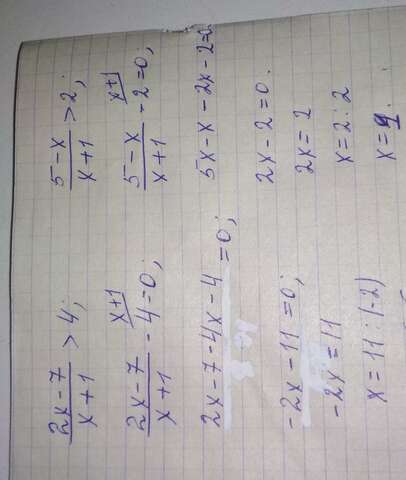 (2x-7)/(x+1) > 4;
(2x-7)/(x+1) - 4 = 0; x+1
2x-7-4x-4 = 0;
-2x-11=0;
-2x=11
x=11:(-2)
(5-x)/(x+1) > 2;
(5-x)/(x+1) - 2 = 0; x+1
5x-x-2x-2=0
2x-2=0.
2x=2
x=2:2
x=1.